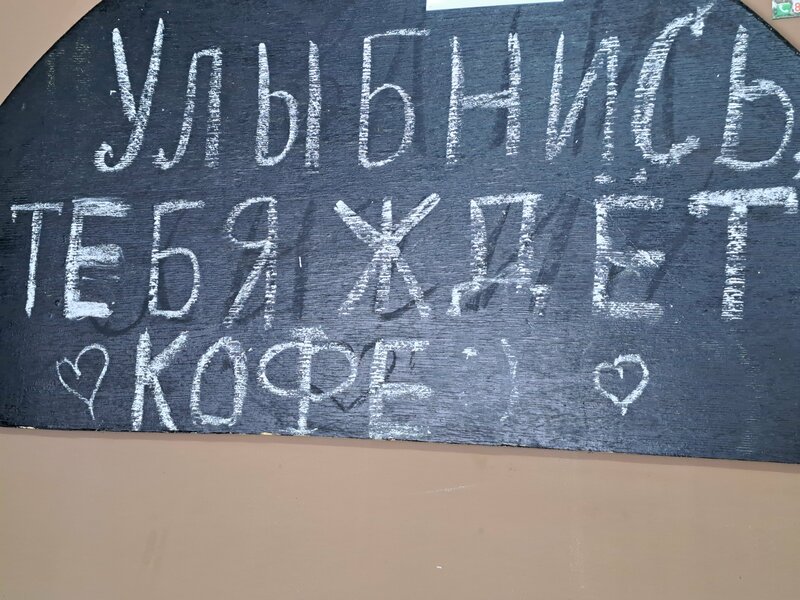 УЛЫБНИСЬ,
ТЕБЯ ЖДЁТ
♡ КОФЕ :) ♡